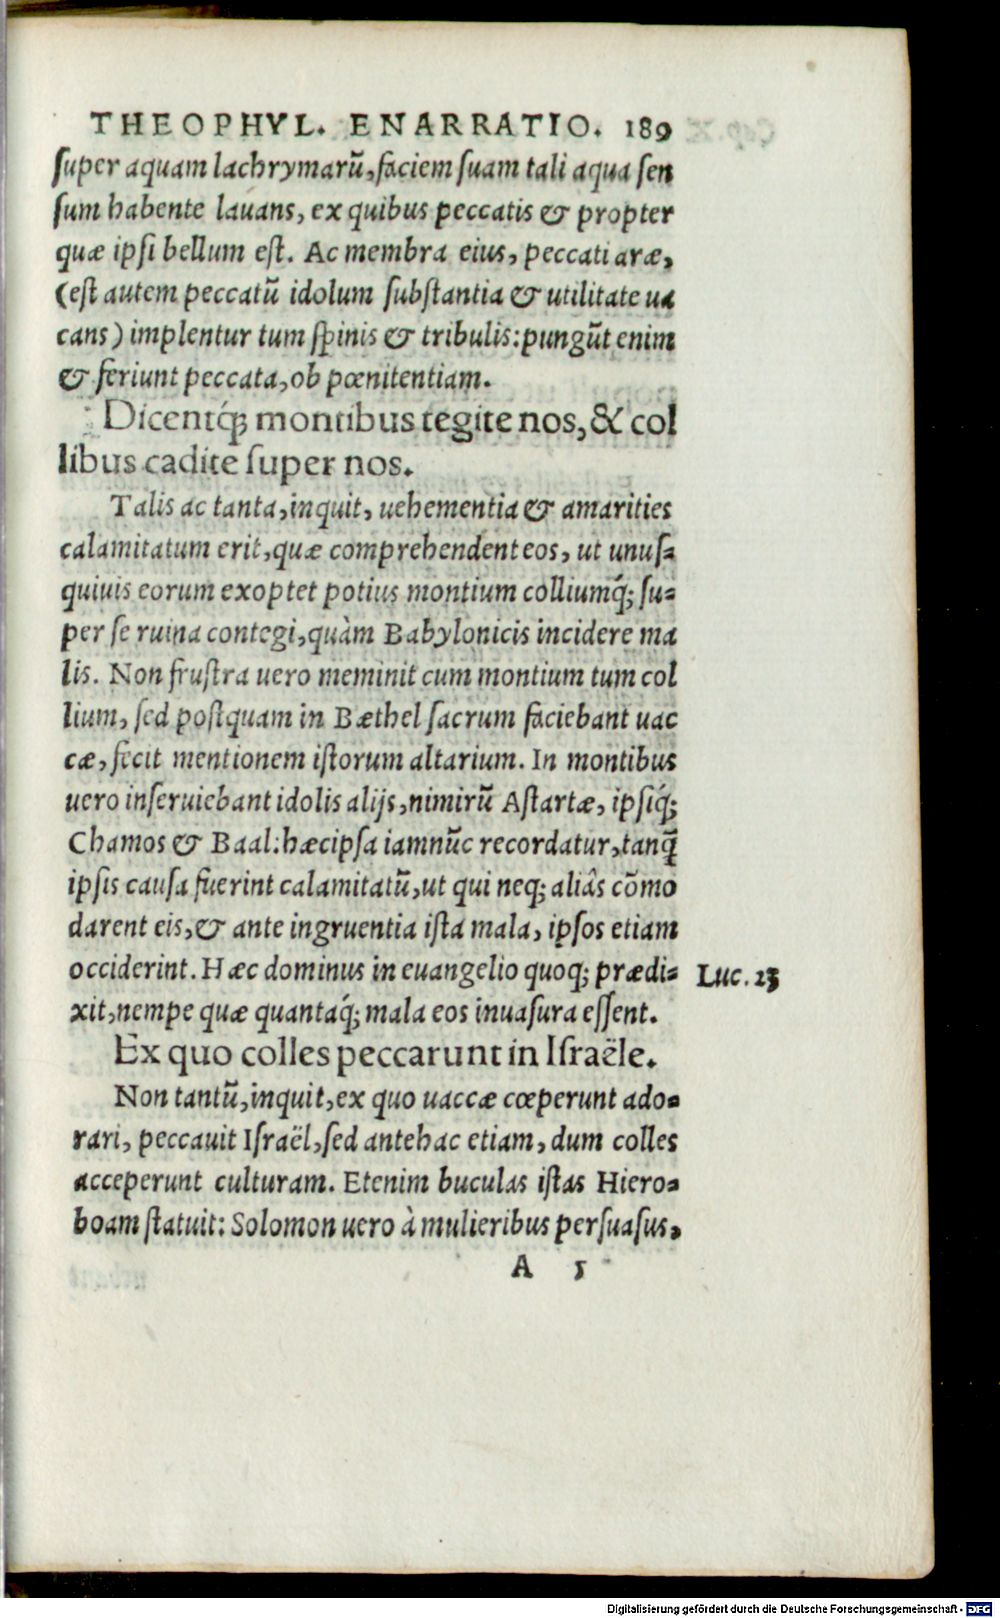 THEOPHYL. ENARRATIO. 189
super aquam lachrymarū, faciem suam tali aqua sen
sum habente lauans, ex quibus peccatis & propter
quæ ipsi bellum est. Ac membra eius, peccati aræ,
(est autem peccatū idolum substantia & utilitate ua
cans) implentur tum spinis & tribulis: pungūt enim
& feriunt peccata, ob pœnitentiam.
Dicentq́ꝫ montibus tegite nos, & col
libus cadite super nos.
Talis ac tanta, inquit, uehementia & amarities
calamitatum erit, quæ comprehendent eos, ut unus⸗
quiuis eorum exoptet potius montium colliumq́ꝫ su⸗
per se ruina contegi, quàm Babylonicis incidere ma
lis. Non frustra uero meminit cum montium tum col
lium, sed postquam in Bæthel sacrum faciebant uac
cæ, fecit mentionem istorum altarium. In montibus
uero inseruiebant idolis alijs, nimirū Astartæ, ipsiq́ꝫ
Chamos & Baal: hæc ipsa iam nūc recordatur, tanq̄
ipsis causa fuerint calamitatū, ut qui neqꝫ aliâs cōmo
darent eis, & ante ingruentia ista mala, ipsos etiam
occiderint. Hæc dominus in euangelio quoqꝫ prædi⸗
Luc. 23
xit, nempe quæ quantaq́ꝫ mala eos inuasura essent.
Ex quo colles peccarunt in Israële.
Non tantū, inquit, ex quo uaccæ cœperunt ado⸗
rari, peccauit Israël, sed antehac etiam, dum colles
acceperunt culturam. Etenim buculas istas Hiero⸗
boam statuit: Solomon uero à mulieribus persuasus,
A 5
Digitalisierung gefördert durch die Deutsche Forschungsgemeinschaft - DFG